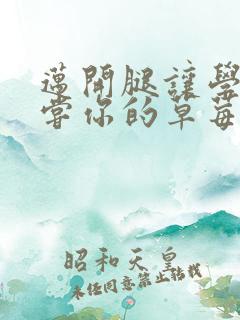 邁開腿讓學
嘗你的草莓
昭和天皇
未任同意禁止轉載